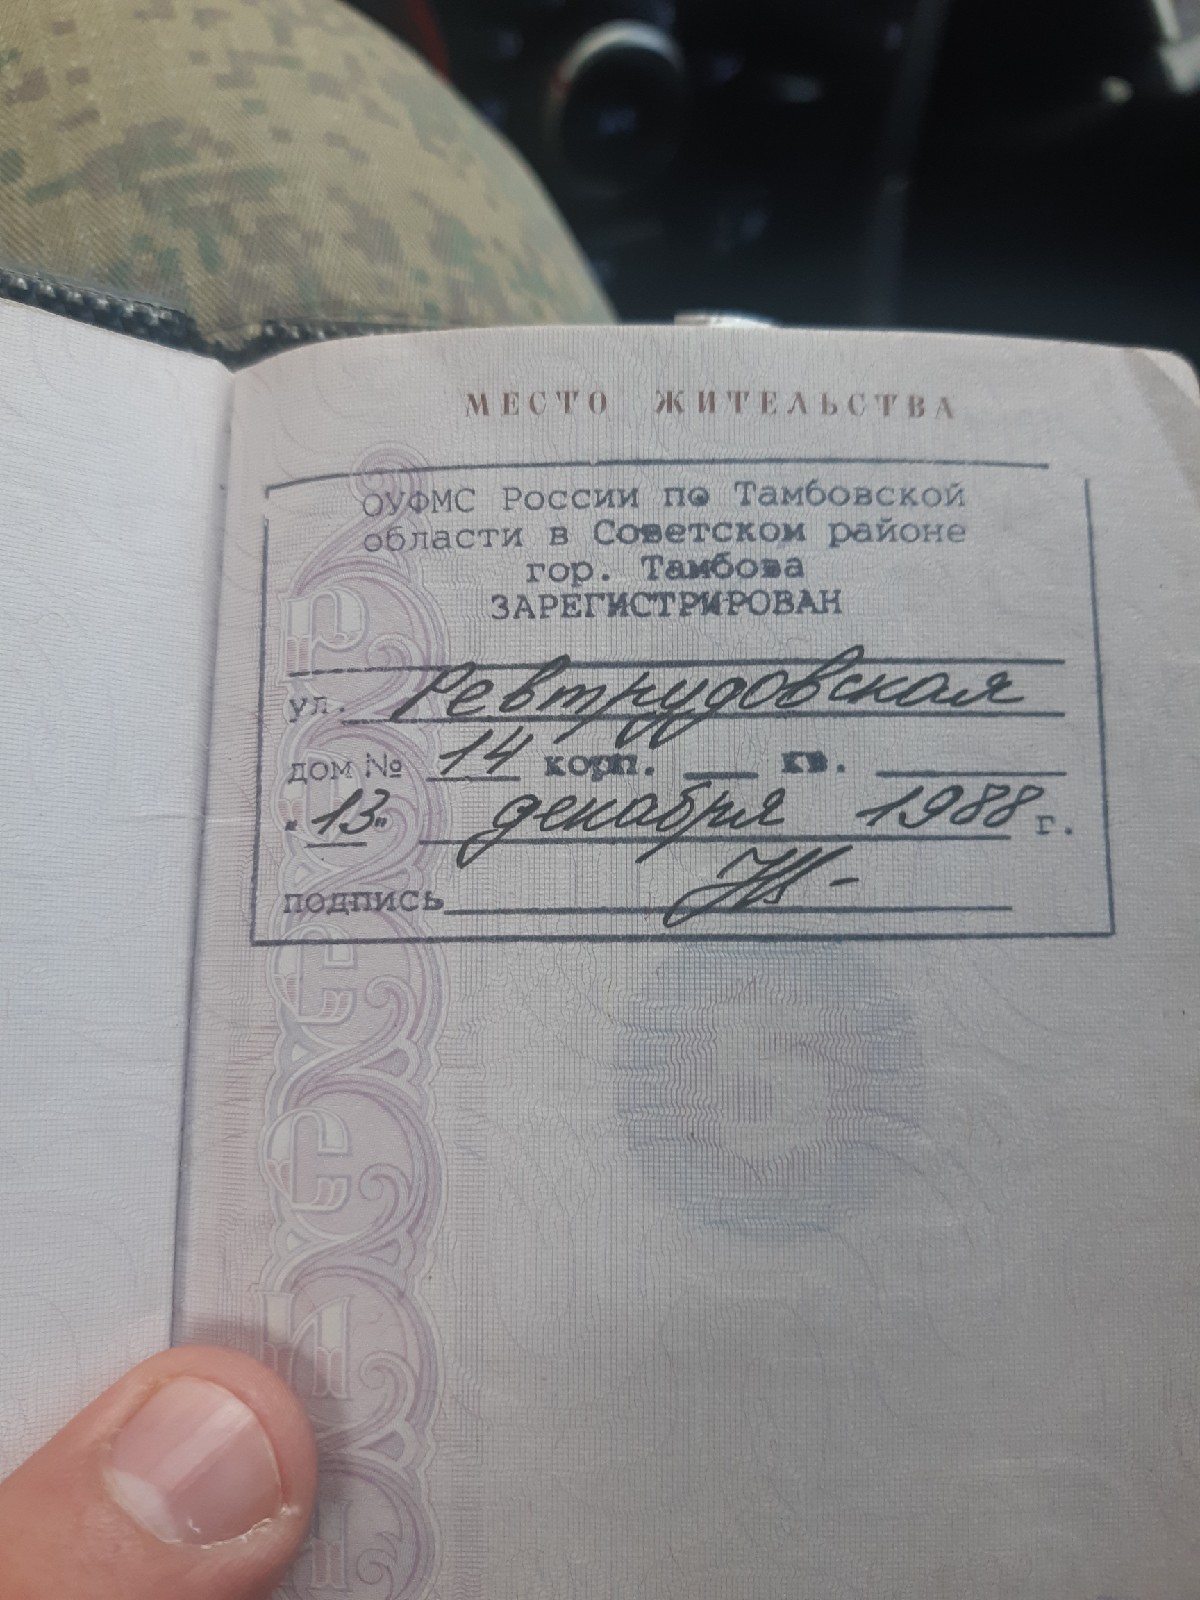 МЕСТО ЖИТЕЛЬСТВА
ОУФМС России по Тамбовской
области в Советском районе
гор. Тамбова
ЗАРЕГИСТРИРОВАН
ул. Ревтрудовская
дом № 14 корп. __ кв. ____
"13" декабря 1988 г.
подпись